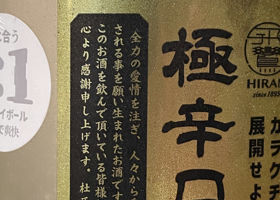 合う
:1
イボール
で爽快
全力の愛情を注ぎ、人々から
される事を願い生まれたお酒です
このお酒を飲んで頂いている皆様
心より感謝申し上げます。杜氏
極辛口
HIRA
since 189
カラク
展開せよ